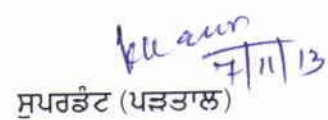 7/11/13
ਸੁਪਰਡੰਟ (ਪੜਤਾਲ)